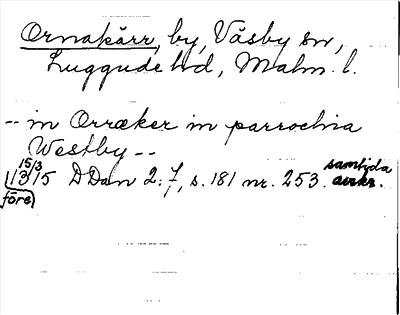 Ornakärr, by, Väsby sn,
Luggude hd, Malm. l.
-- in Orræker in parrochia
Westby --
15/3
1315 DDan 2:7, s. 181 nr. 253. samtida avskr.
(före)